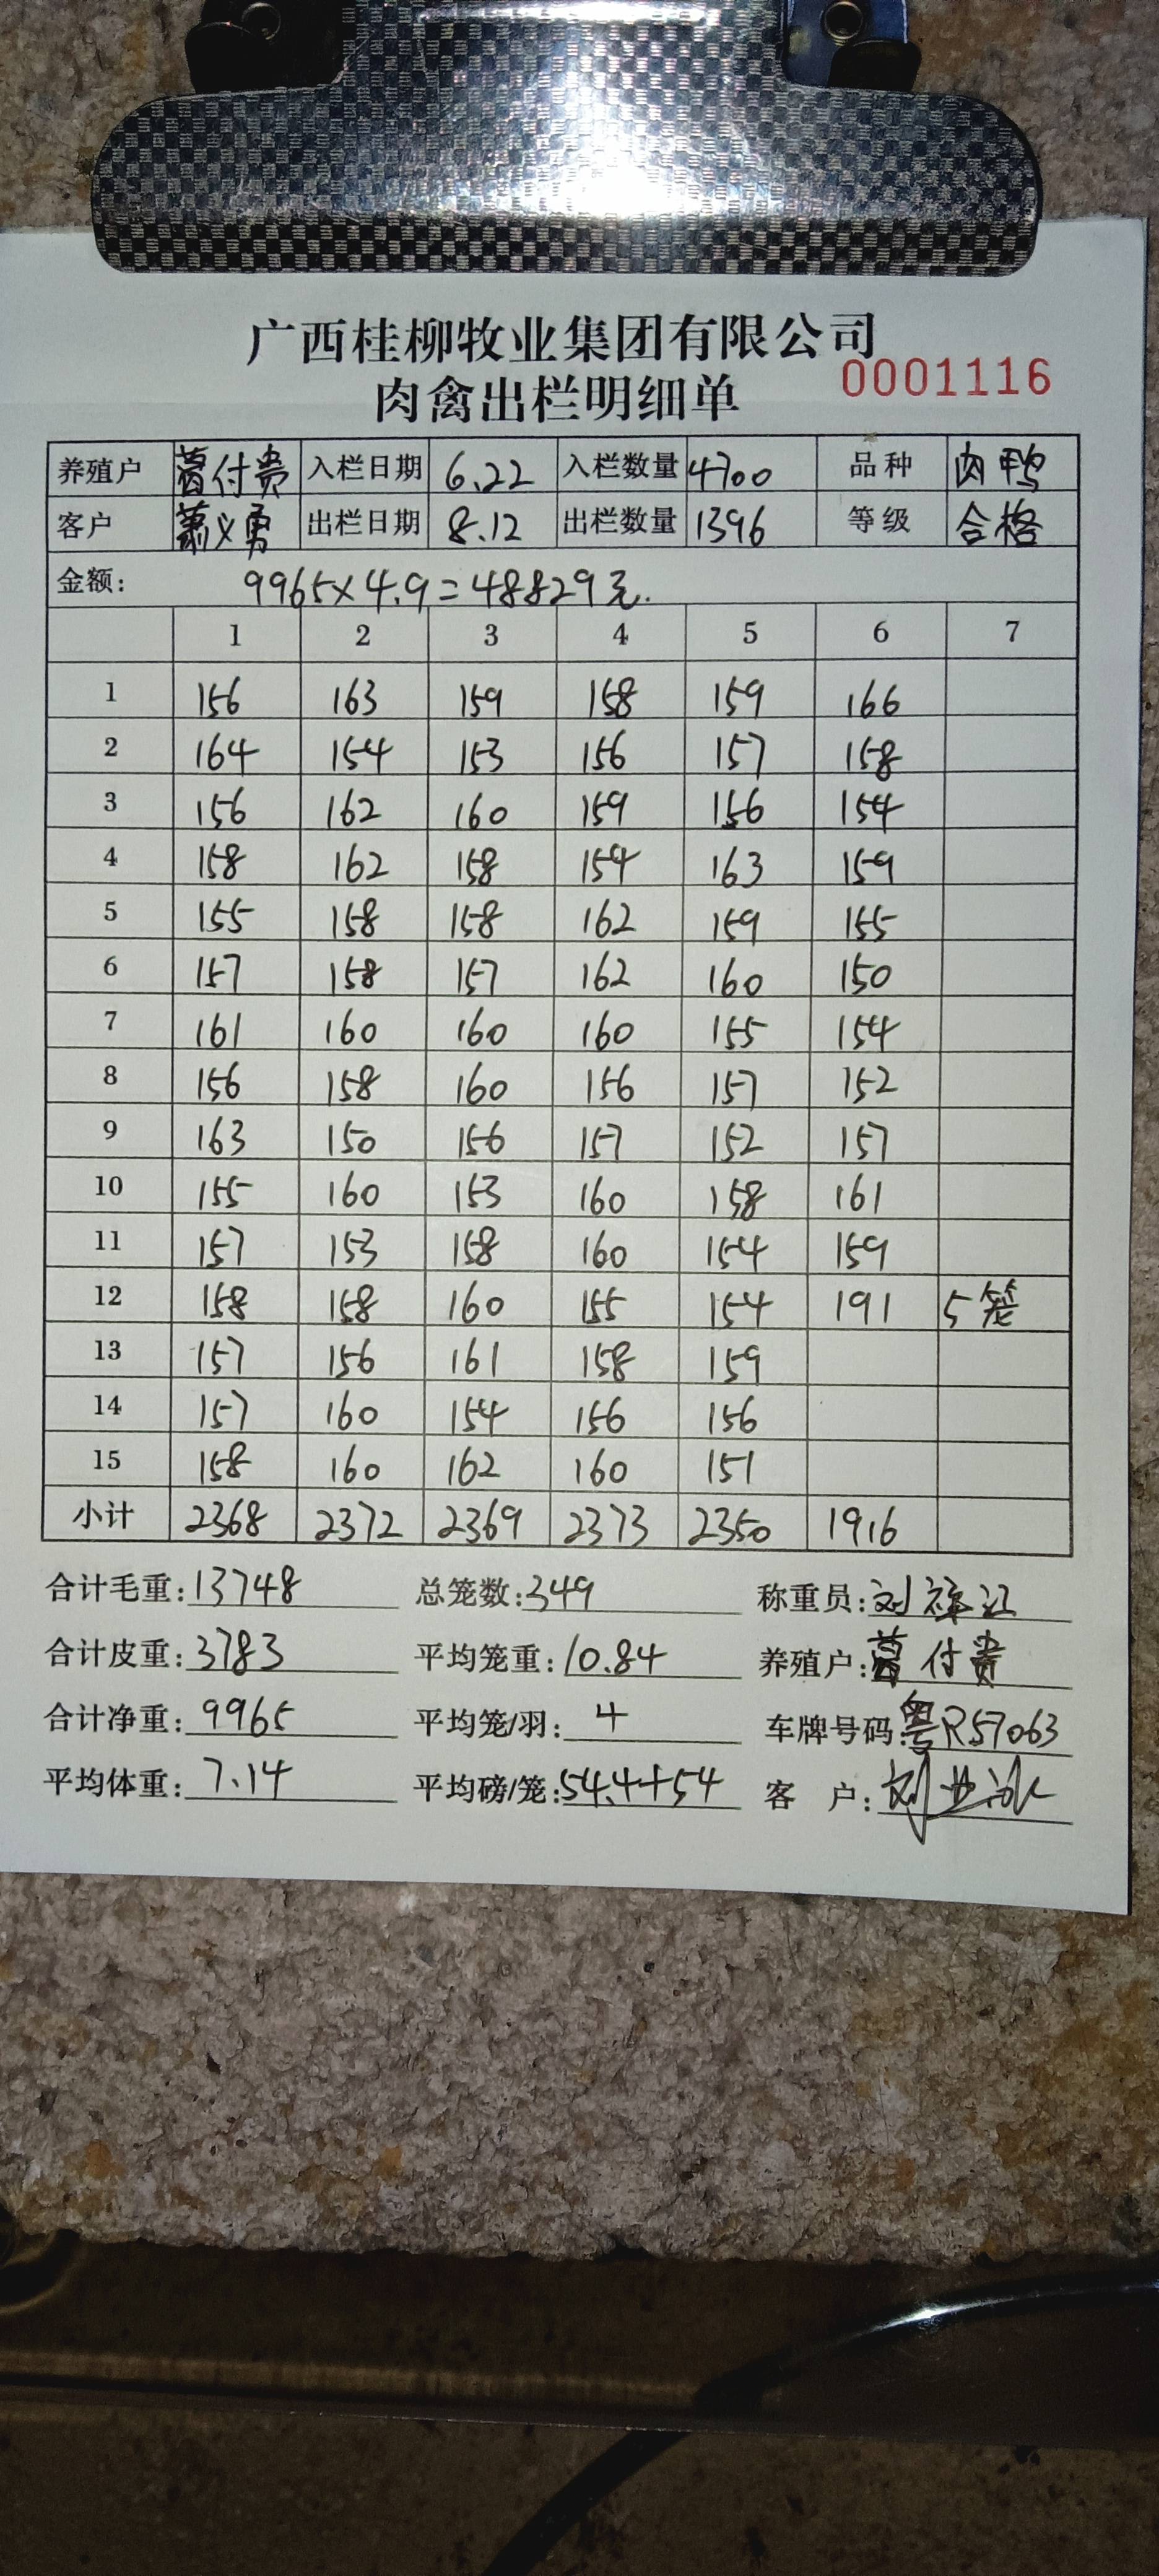 广西桂柳牧业集团有限公司
肉禽出栏明细单 0001116
养殖户 付贵 入栏日期 6.22 入栏数量 4700 品种 肉鸭
客户 萧义勇 出栏日期 8.12 出栏数量 1396 等级 合格
金额: 9965×4.9=48829元.
1 2 3 4 5 6 7
1 156 163 159 158 159 166
2 164 154 153 156 157 158
3 156 162 160 159 156 154
4 158 162 158 154 163 159
5 155 158 158 162 159 155
6 157 158 157 162 160 150
7 161 160 160 160 155 154
8 156 158 160 156 157 152
9 163 150 156 157 152 157
10 155 160 153 160 158 161
11 157 153 158 160 154 159
12 158 158 160 155 154 191 5笼
13 157 156 161 158 159
14 157 160 154 156 156
15 158 160 162 160 151
小计 2368 2372 2369 2373 2350 1916
合计毛重:13748 总笼数:349 称重员:刘祥江
合计皮重:3783 平均笼重:10.84 养殖户: 付贵
合计净重:9965 平均笼/羽:4 车牌号码:粤R57063
平均体重:7.14 平均磅/笼:54.4+54 客 户: